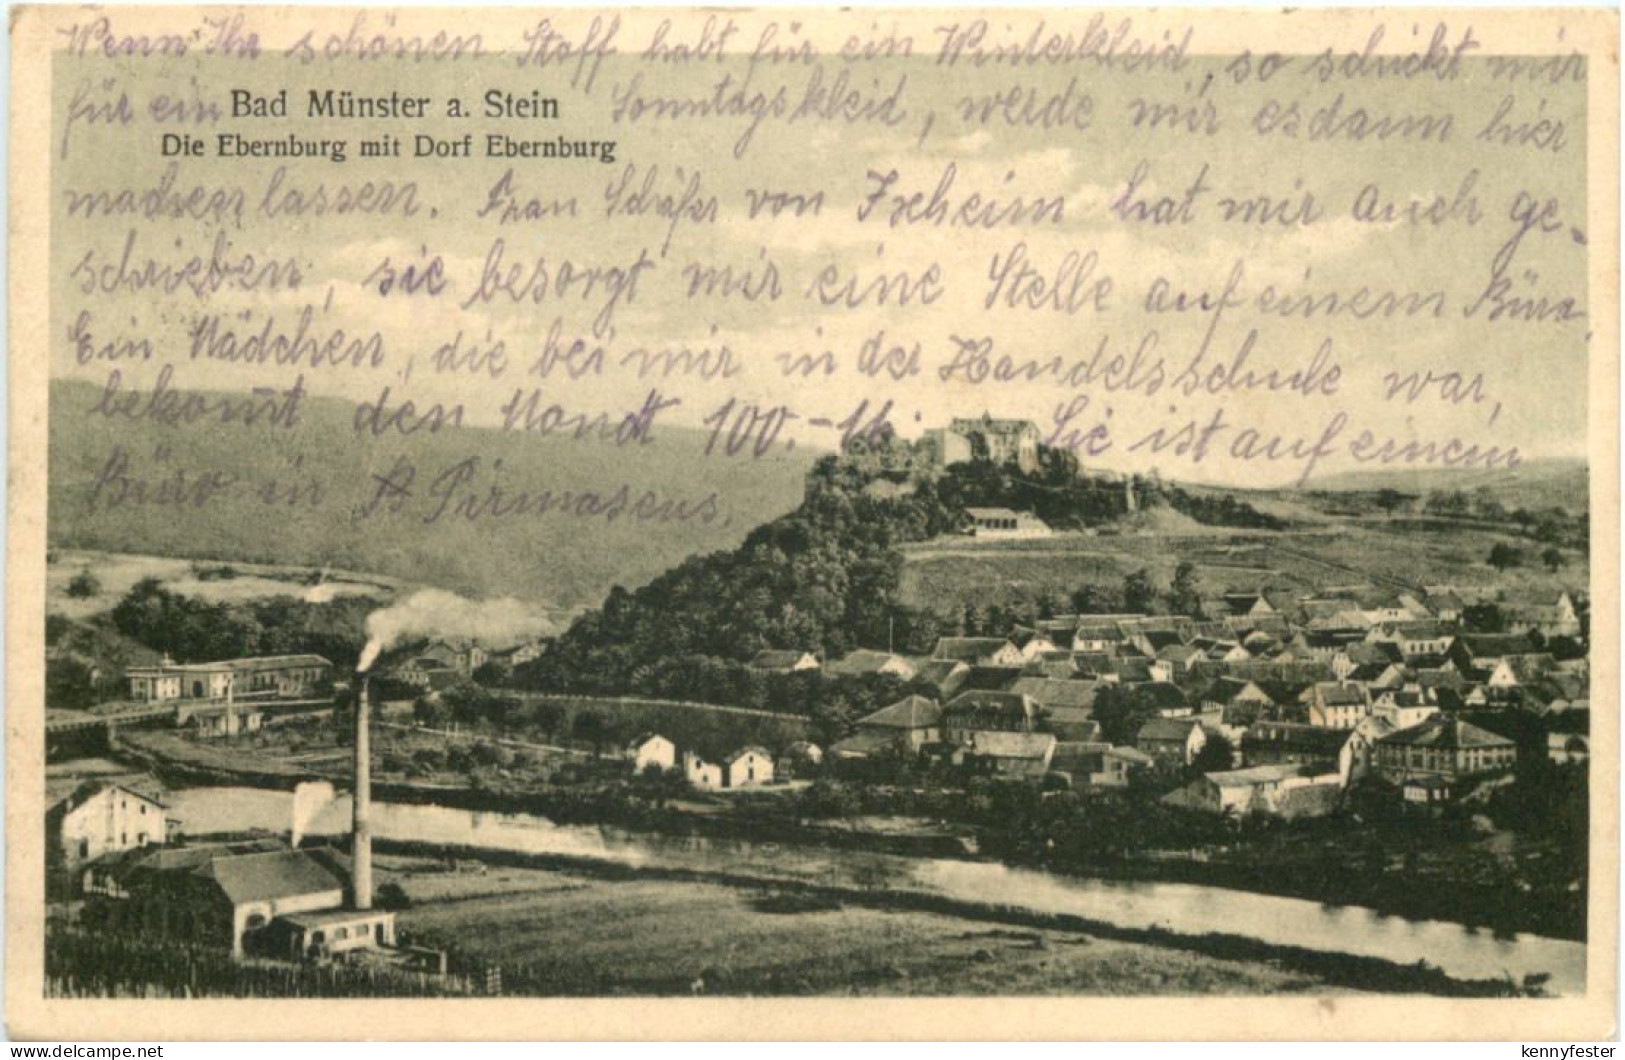 Wenn Ihr schönen Stoff habt für ein Winterkleid, so schickt mir
für ein Sonntagskleid, werde mir es dann hier
Bad Münster a. Stein
Die Ebernburg mit Dorf Ebernburg
machen lassen. Frau Schäfer von Ixheim hat mir auch ge-
schrieben, sie besorgt mir eine Stelle auf einem Büro.
Ein Mädchen, die bei mir in der Handelsschule war,
bekommt den Monat 100.- M. Sie ist auf einem
Büro in Pirmasens.
kennyfester